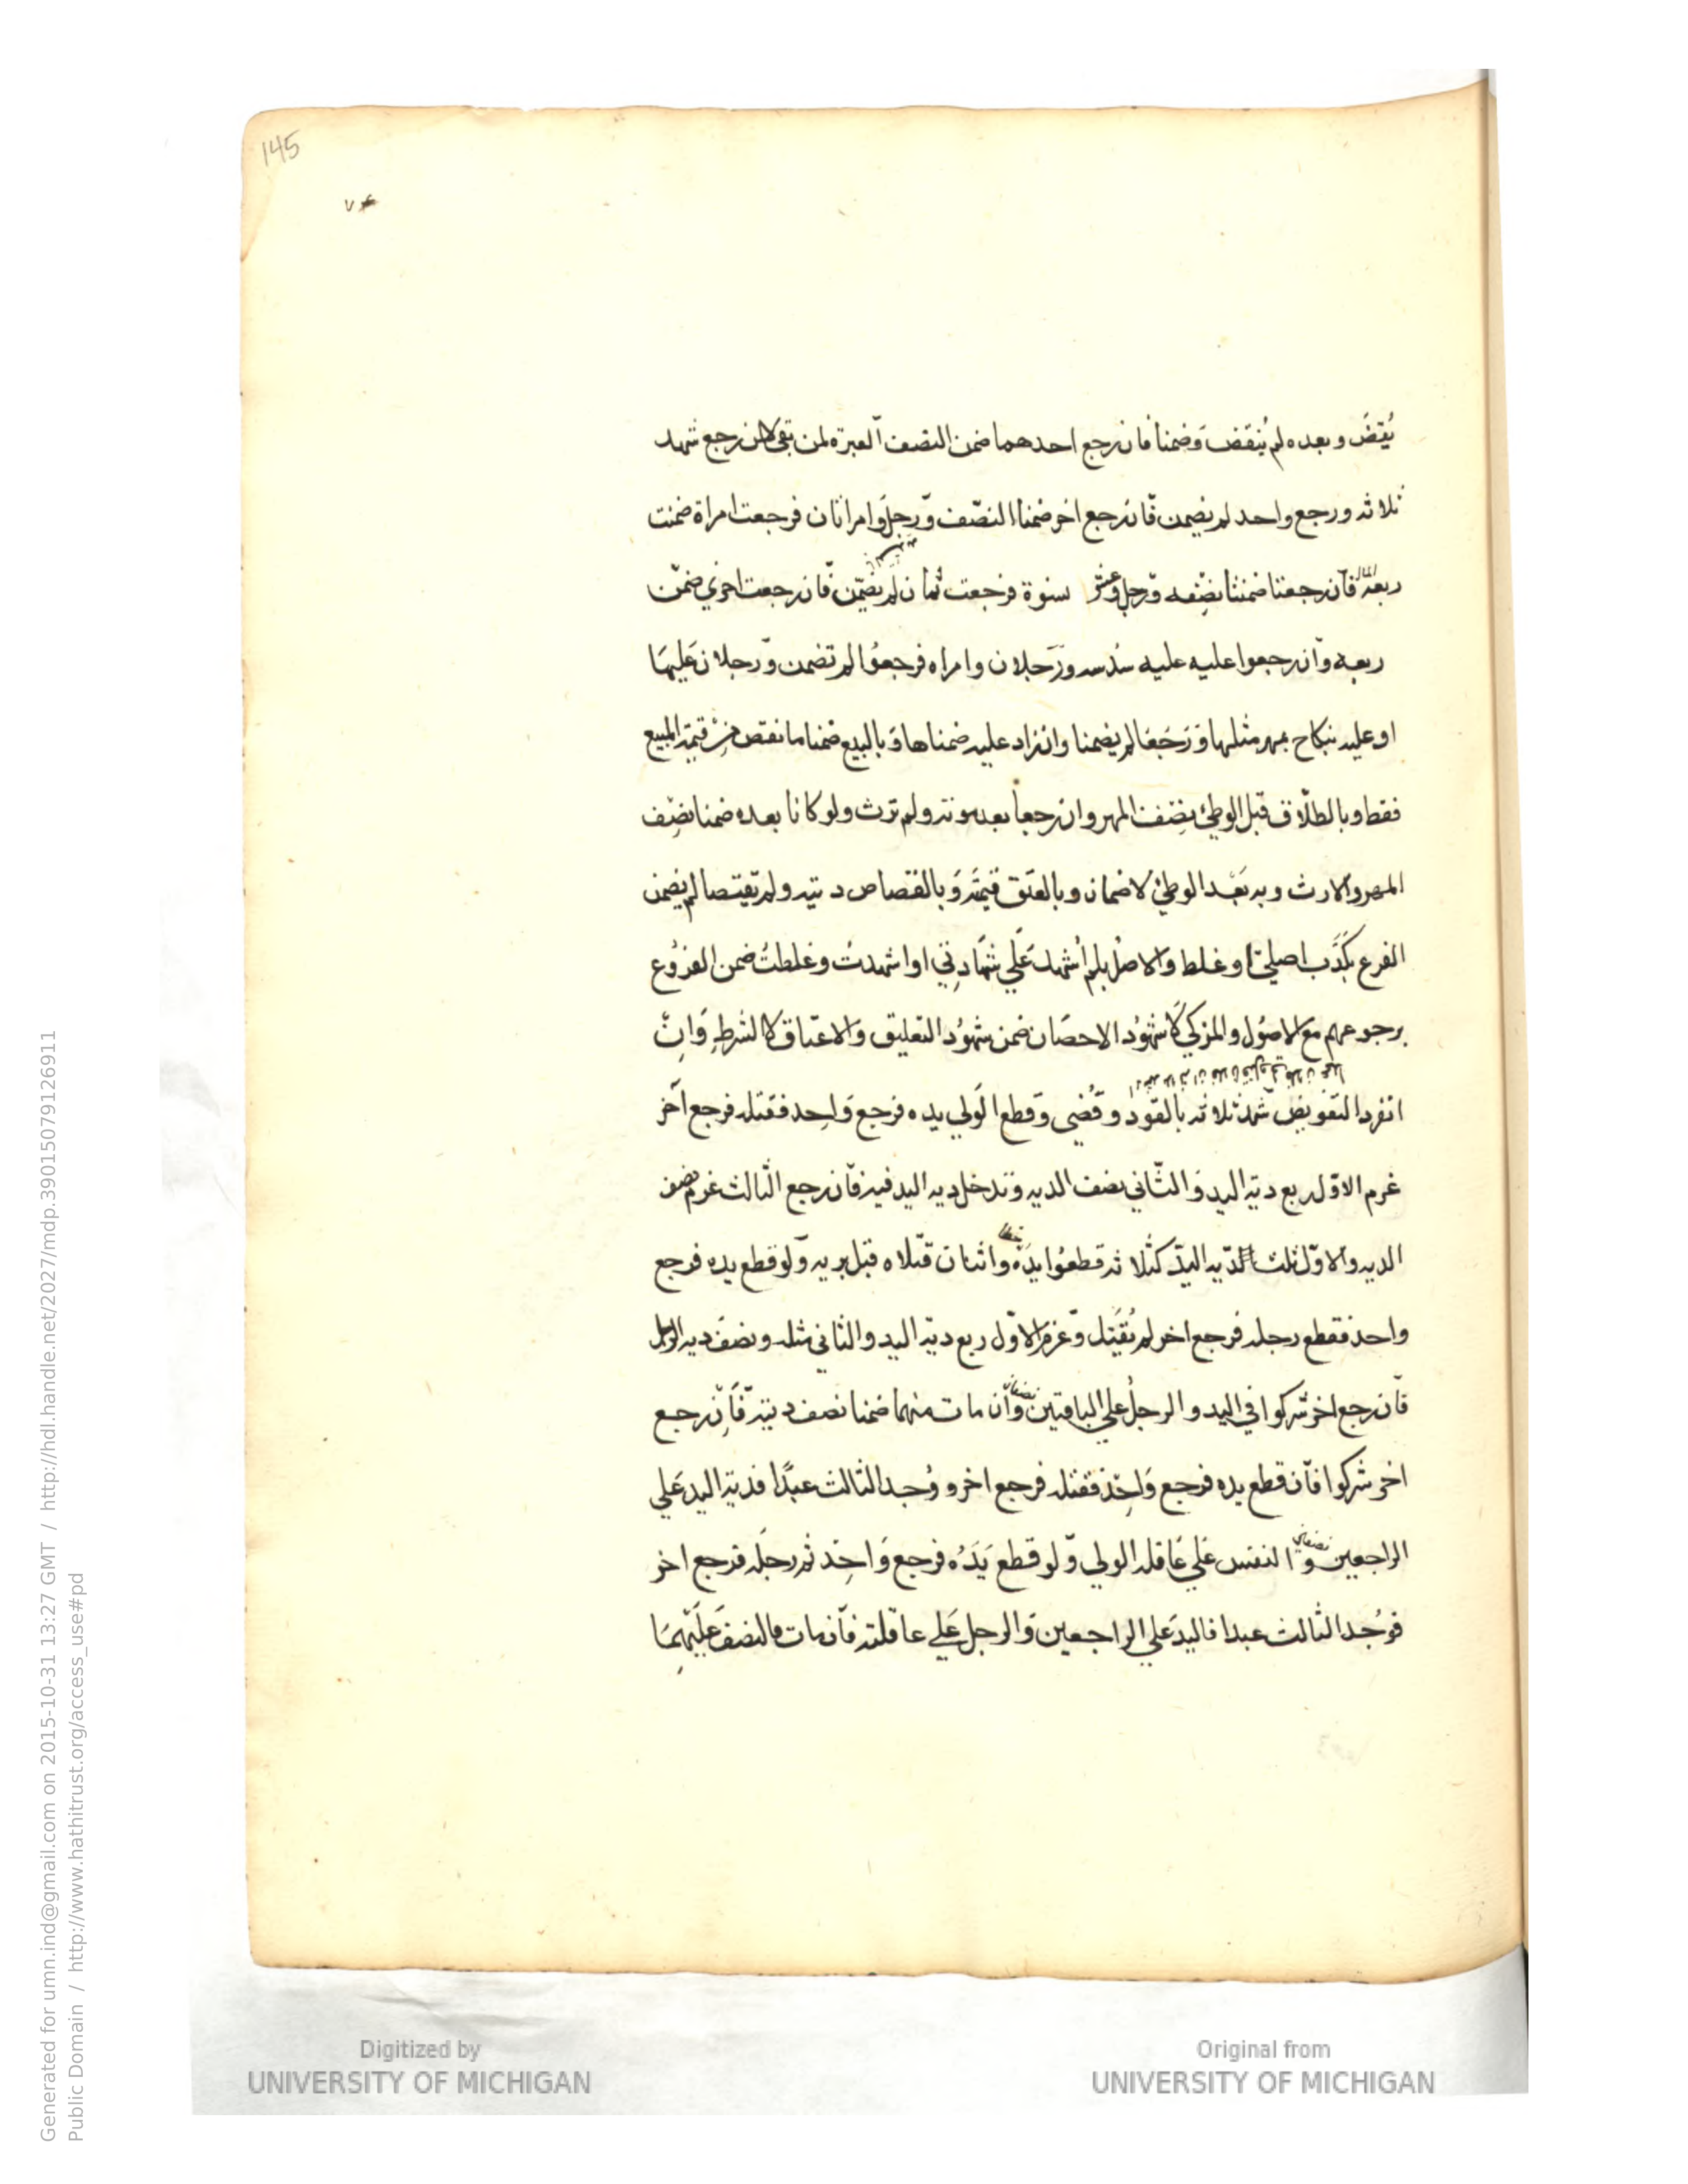 145
٧٤
يُقضَ وبعده لم يُنقَض وَضمنا فان رجع احدهما ضمن النصف آلعبرة لمن بقى لا لمن رجع شهد
ثلاثه ورجع واحد لم يضمن فّان رجع اخر ضمنا النصّف وّرجل وامراتان فرجعت امراة ضمنت
ربعه فآن رجعتا ضمنتا نصِفه وّرجل وعشر نسوة فرجعت ثمان لم يضّمن فّان رجعت اخري ضمنّ
ربعه وآن رجعوا عليه عليه سُدسه ورَجلان وامراه فرجعوُا لم تضمن وّرجلان عَليهَا
او عليه بنكاح بمهر مثلها وَرَجَعَا لم يضمنا وان زاد عليه ضمناها وَبالبيع ضمنا ما نقص من قيمة المبيع
فقط وبالطلّاق قبل الوطئ نِصف المهر وان رجعا بعد موته ولم ترث ولو كانا بعده ضمنا نصِف
المهر والارث وبه بَعْد الوطئ لا ضمان وبالعتَق قيمتَه وَبالقصاص ديته ولم يقتصا لم يضمن
الفرع بكَذَب اصلي او غلط والاصُل بلم اُشهد عَلي شهَادتي او اشهدتُ وغلطتُ ضمن الفرُوع
برجوعهم مع الاصوُل والمزكي كاَ شهوُد الاحصَان ضمن شهوُد التعليق والاعتاق لا الشرطِ وَانّ
انفرد التفويض شهد ثلاثه بالقود وقُضي وقطع الَولي يده فرجع وَاحِد فقتله فرجع آخر
غرم الاوّل ربع ديّة اليد وَالثّاني نصف الديه وتدخل ديه اليد فيه فآن رجع الثالث غرم نصف
الديه والاوّل ثلث الدّيه اليدّ كثلاثه قطعوُا يدَهُ واثنان قتلاه قبل بريه وّلو قطع يده فرجع
واحد فقطع رجله فرجع اخر لم يُقَتل وّغرم الاوّل ربع ديّة اليد والثاني مثله ونصفَ ديه الرجل
فآن رجع اخر شركوا في اليد والرجلُ علي الباقيين نصفان وآن مات منهما ضمنا نصف ديته فَآنْ رجع
اخر شركوا فآن قطع يده فرجع وَاحِد فقتله فرجع اخر ووُجد الثالث عبدًا فديّة اليد عَلي
الراجعين نصفان و النفس عَلي عَاقله الولي وّلو قطع يَدَهُ فرجع وَاحِد ثم رجلَه فرجع اخر
فوُجد الثالث عبدا فاليد عَلي الراجعين وَالرجل عَلي عاقلته فآن مات فالنصف عَلَيْهِمَا
Digitized by
UNIVERSITY OF MICHIGAN
Original from
UNIVERSITY OF MICHIGAN
Generated for umn.ind@gmail.com on 2015-10-31 13:27 GMT / http://hdl.handle.net/2027/mdp.39015079126911
Public Domain / http://www.hathitrust.org/access_use#pd